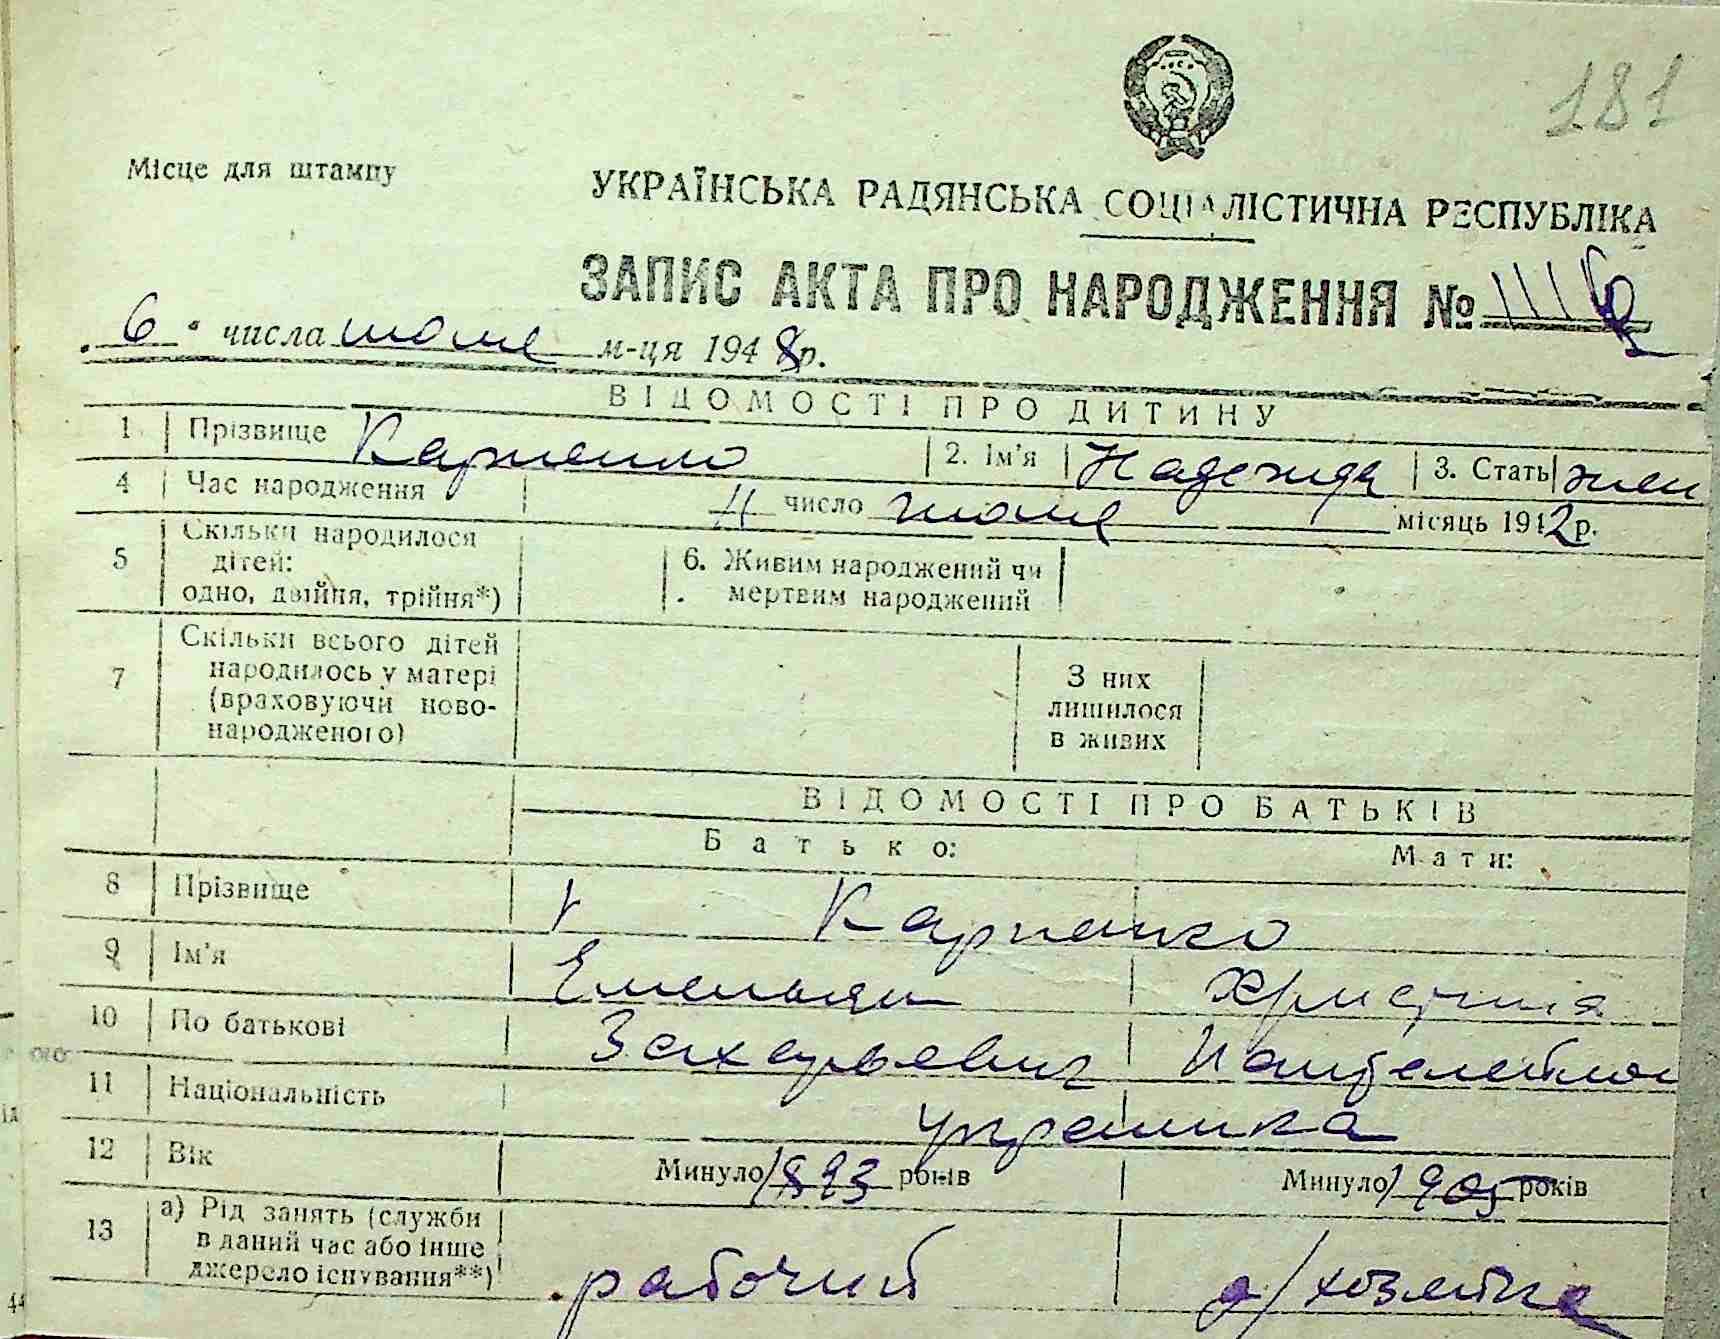 181
Місце для штампу
УКРАЇНСЬКА РАДЯНСЬКА СОЦІАЛІСТИЧНА РЕСПУБЛІКА
ЗАПИС АКТА ПРО НАРОДЖЕННЯ №
6 числа июля м-ця 1948 р.
ВІДОМОСТІ ПРО ДИТИНУ
1 Прізвище Карпенко 2. Ім'я Надежда 3. Стать жен
4 Час народження число июля місяць 1942 р.
5 Скільки народилося дітей: одно, двійня, трійня*) 6. Живим народжений чи мертвим народжений
7 Скільки всього дітей народилось у матері (враховуючи новонародженого) З них лишилося в живих
ВІДОМОСТІ ПРО БАТЬКІВ
Батько: Мати:
8 Прізвище Карпенко
9 Ім'я Емельян Християя
10 По батькові Захарьевич Пантелеймон
11 Національність украинка
12 Вік Минуло 1893 років Минуло 1905 років
13 а) Рід занять (служби в даний час або інше джерело існування**) рабочий д/хозяйка